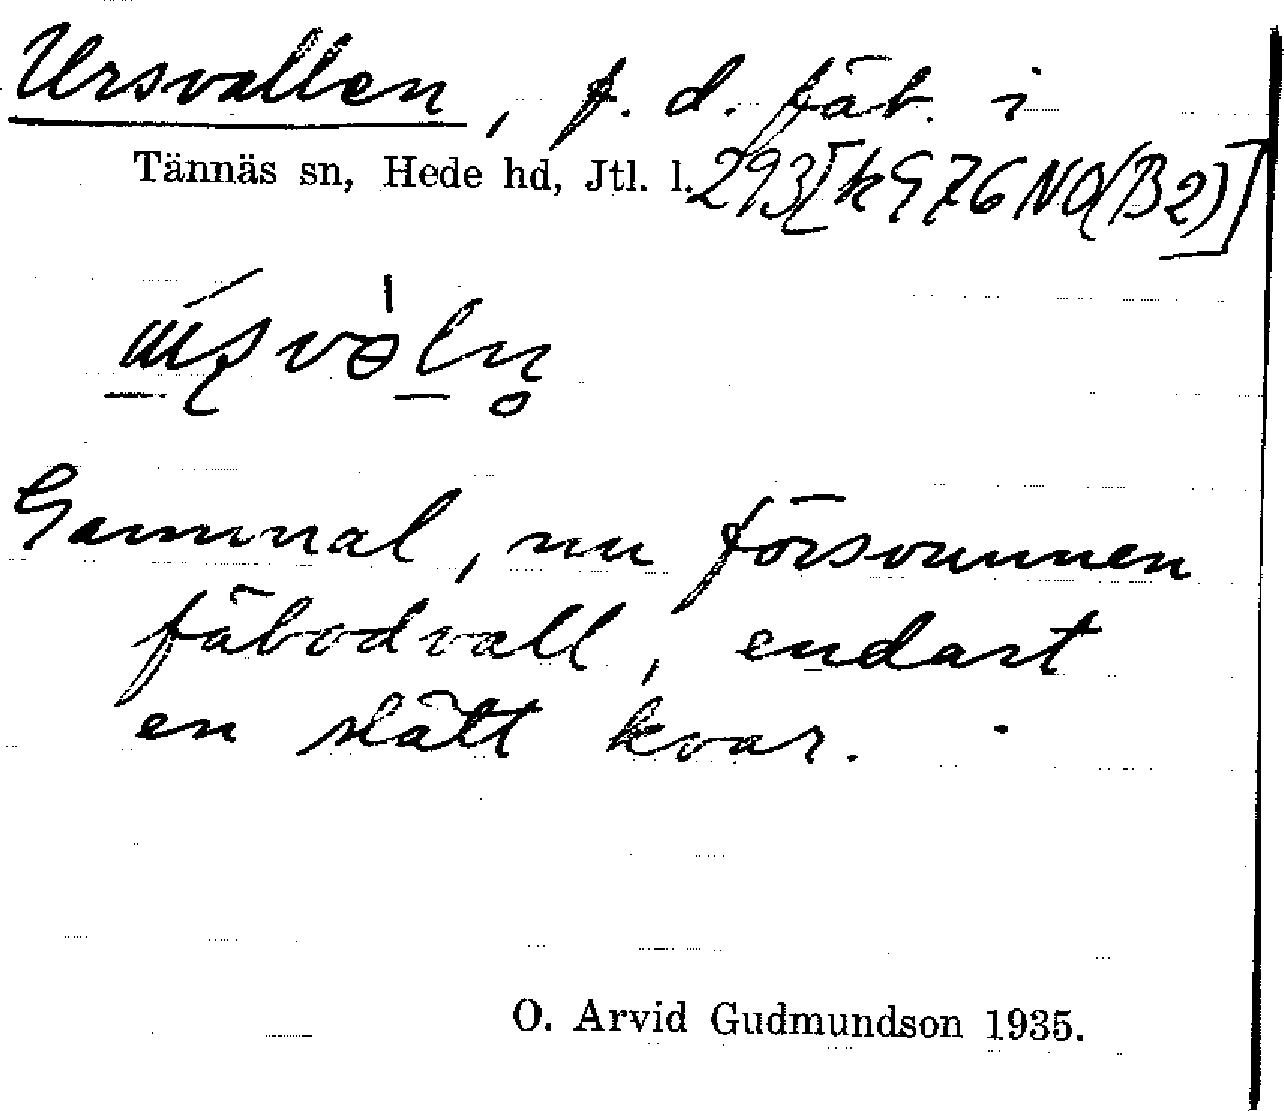 Ursvallen, f. d. fäb. i
Tännäs sn, Hede hd, Jtl. l. 293[k976NO(B2)]
Gammal, nu försvunnen
fäbodvall, endast
en slätt kvar.
O. Arvid Gudmundson 1935.